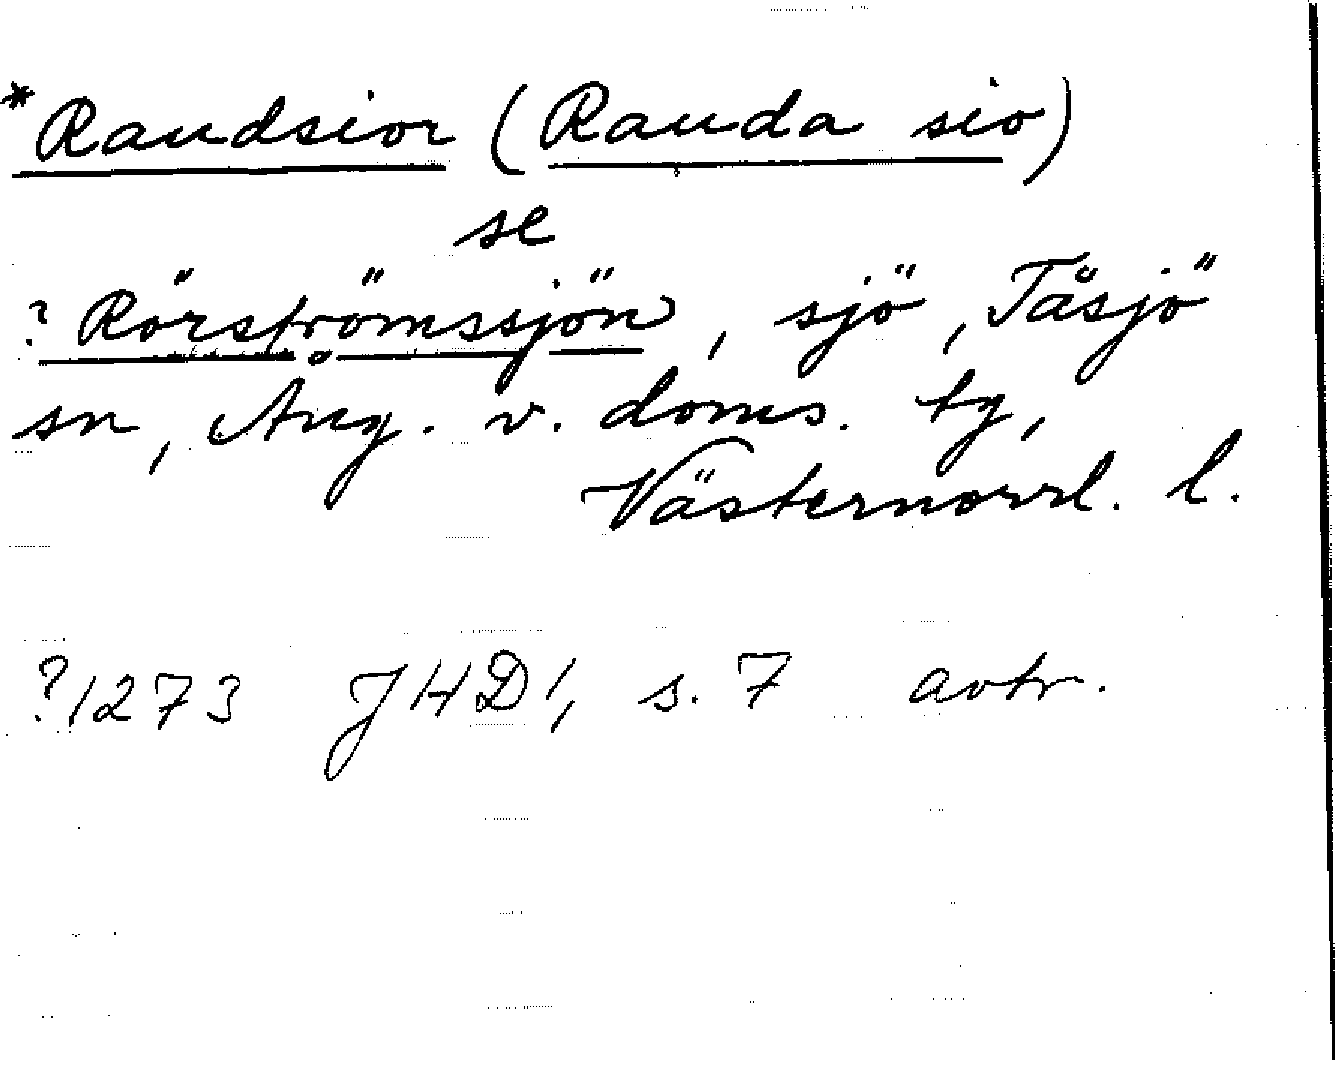 *Raudsior (Rauda sio)
se
? Rörströmssjön, sjö, Tåsjö
sn, Ång. v. doms. tg,
Västernorrl. l.
?1273 JHD 1, s. 7 avtr.